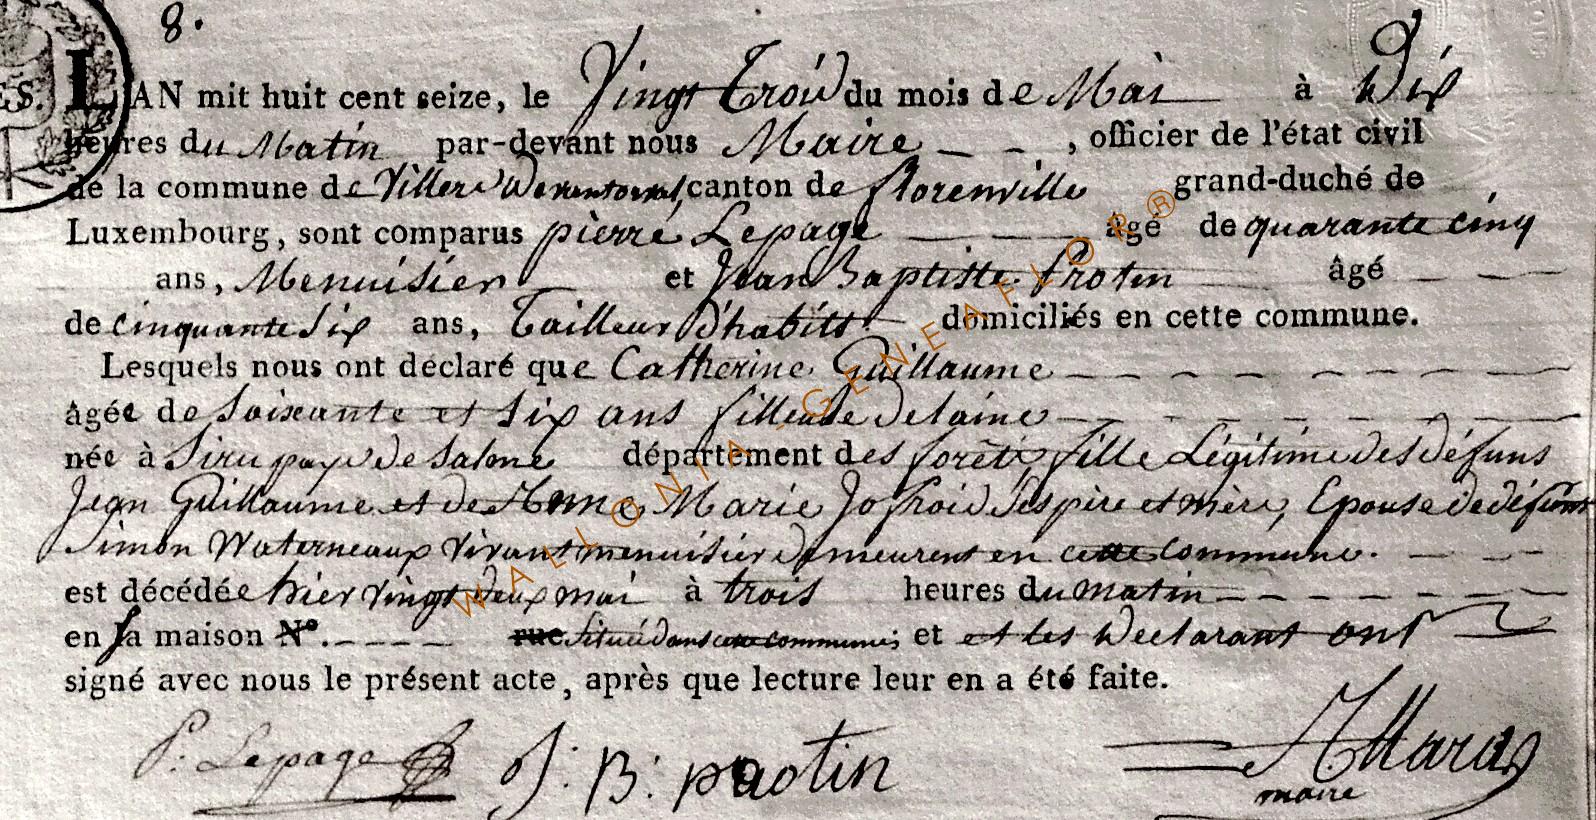 8.
L'AN mil huit cent seize, le Vingt Trois du mois de Mai à Dix
heures du Matin par-devant nous Maire , officier de l'état civil
de la commune de Villers Devantorval, canton de florenville grand-duché de
Luxembourg, sont comparus pierre Lepage âgé de quarante cinq
ans, Menuisier et Jean Baptiste protin âgé
de cinquante Six ans, Tailleur D'habits domiciliés en cette commune.
Lesquels nous ont déclaré que Catherine Guillaume
âgée de Soixante et Six ans filleuse de laine
née à département des forêts, fille Légitime des défuns
Jean Guillaume et de Anne Marie Jofroid Ses père et mère, Epouse de défunt
Simon Waterneaux vivant menuisier demeurent en cette commune.
est décédée hier vingt deux mai à trois heures du matin
en sa maison N°. rue Située dans cette commune; et et les Declarant ont
signé avec nous le présent acte, après que lecture leur en a été faite.
P: Lepage J: B: protin
maire
WALLONIA-GENEAFLOR®